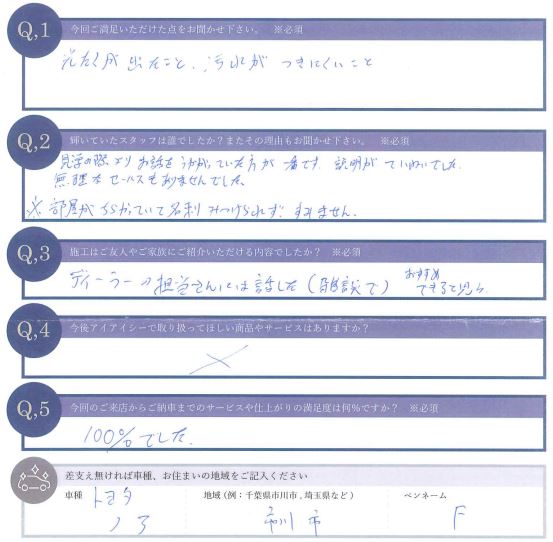 Q,1 今回ご満足いただけた点をお聞かせ下さい。 ※必須
光たくが出たこと、汚れがつきにくいこと
Q,2 輝いていたスタッフは誰でしたか？またその理由もお聞かせ下さい。 ※必須
見学の際よりお話をうかがっていた方が一番です。説明がていねいでした。
無理なセールスもありませんでした。
※部屋がちらかっていて名刺みつけられず、すみません。
Q,3 施工はご友人やご家族にご紹介いただける内容でしたか？ ※必須
ディーラーの担当さんには話した（雑談で） おすすめ
できると思う
Q,4 今後アイアイシーで取り扱ってほしい商品やサービスはありますか？
Q,5 今回のご来店からご納車までのサービスや仕上がりの満足度は何％ですか？ ※必須
100％でした。
差支え無ければ車種、お住まいの地域をご記入ください
車種 トヨタ 地域（例：千葉県市川市，埼玉県など） ペンネーム
ノア 市川市 F